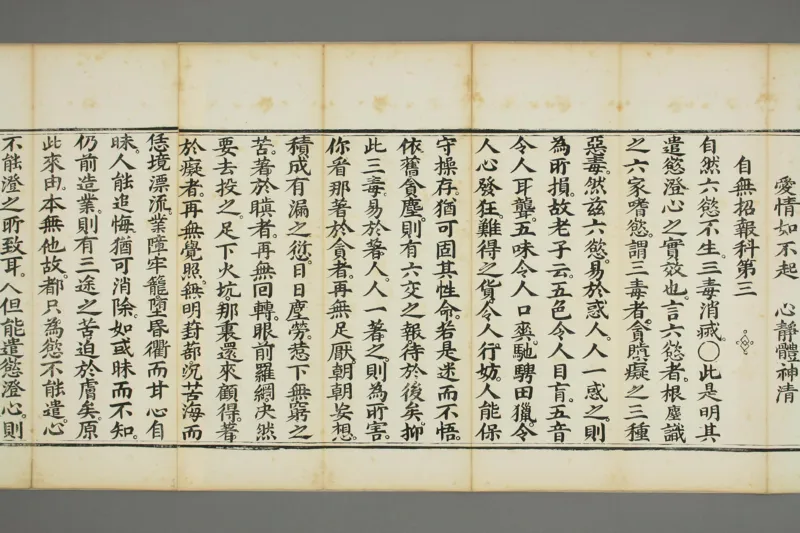 愛情如不起　心靜體神清
自無招報科第三
自然六慾不生。三毒消滅。〇此是明其
遣慾澄心之實效也。言六慾者。根塵識
之六家嗜慾。謂三毒者。貪瞋癡之三種
惡毒。然兹六慾。易於惑人。人一惑之。則
為所損。故老子云。五色令人目盲。五音
令人耳聾。五味令人口爽。馳騁田獵。令
人心發狂。難得之貨。令人行妨。人能保
守操存。猶可固其性命。若是迷而不悟。
依舊貪塵。則有六交之報待於後矣。抑
此三毒。易於著人。人一著之。則為所害。
你看那著於貪者。再無足厭。朝朝妄想。
積成有漏之愆。日日塵勞。惹下無窮之
苦。著於瞋者。再無回轉。眼前羅網。决然
要去投之。足下火坑。那裏還來顧得。著
於癡者。再無覺照。無明葑蔀。沉苦海而
恁境漂流。業障牢籠。墮昏衢而甘心自
昧。人能追悔。猶可消除。如或昧而不知。
仍前造業。則有三途之苦迫於膚矣。原
此來由。本無他故。都只為慾不能遣。心
不能澄之所致耳。人但能遣慾澄心。則